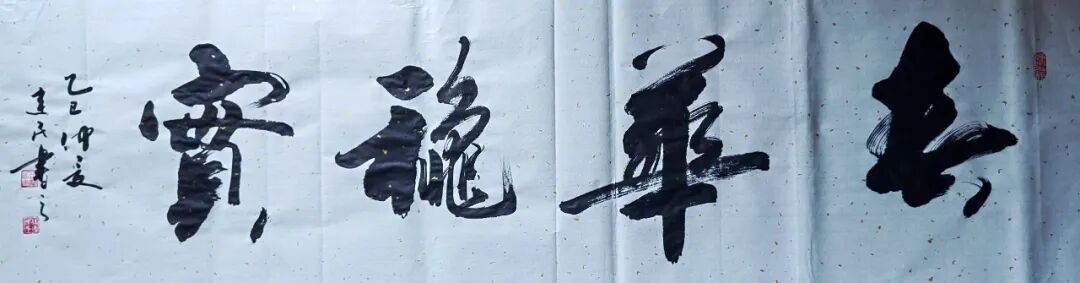 春華穐實
乙巳仲夏
建民書之